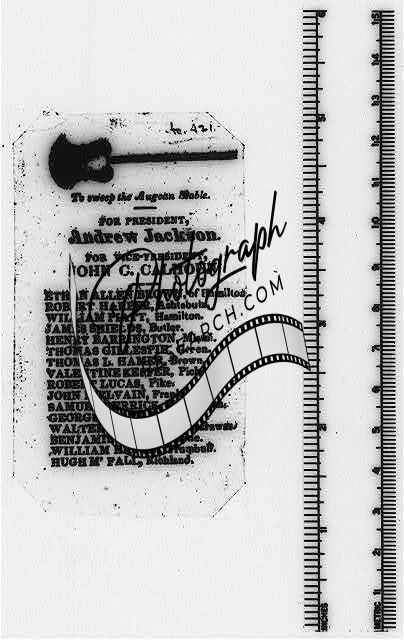 No. 421.
To sweep the Augean Stable.
FOR PRESIDENT,
Andrew Jackson.
FOR VICE-PRESIDENT,
JOHN C. CALHOUN
ETHAN ALLEN BROWN, of Hamilton
ROBERT HARPER, Ashtabula
WILLIAM PIATT, Hamilton.
JAMES SHIELDS, Butler.
HENRY BARRINGTON, Miami.
THOMAS GILLESPIE, Green.
L. HAMER, Brown
VALENTINE KEFFER, Pick
ROBERT LUCAS, Pike.
JOHN M'ELVAIN, Frank
SAMUEL
GEORGE
WALTER
BENJAMIN
WILLIAM Trumbull.
HUGH Mc FALL, Richland.
Photograph
SEARCH.COM
INCHES 1 2 3 4 5 6
METRIC 1 2 3 4 5 6 7 8 9 10 11 12 13 14 15